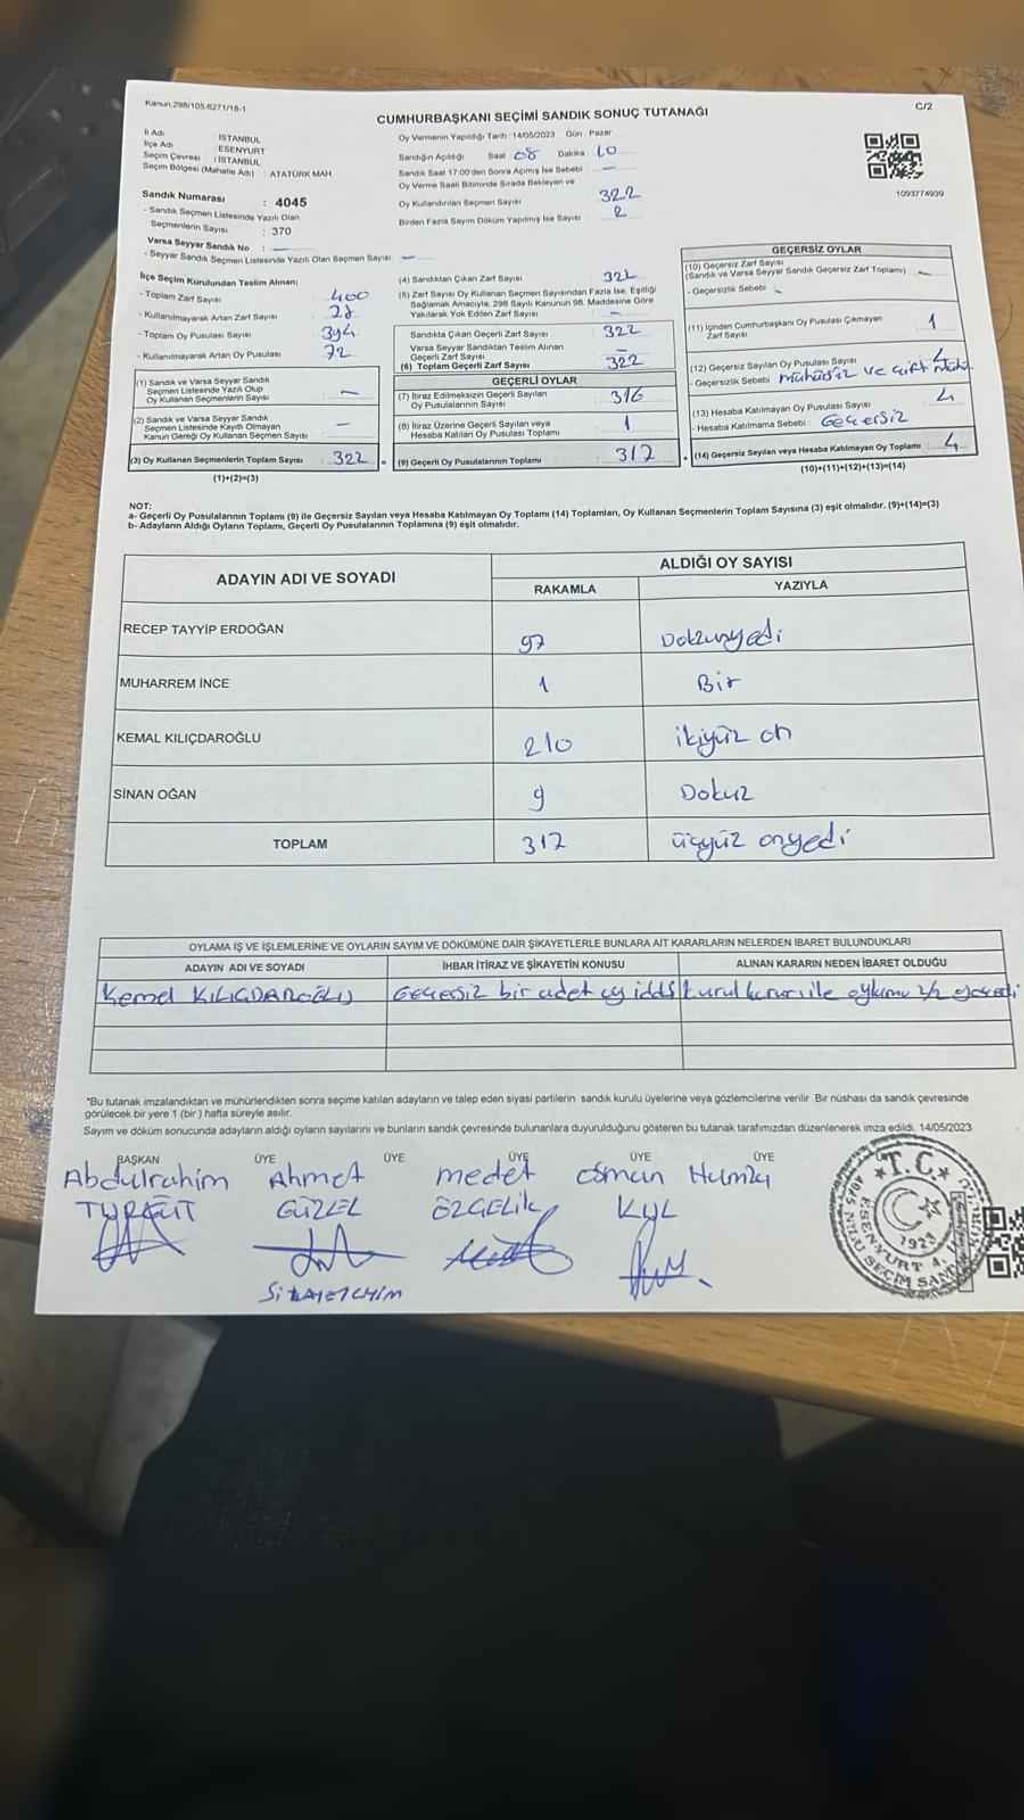 Kanun 298/105-6271/18-1
C/2
CUMHURBAŞKANI SEÇİMİ SANDIK SONUÇ TUTANAĞI
İl Adı : İSTANBUL
İlçe Adı : ESENYURT
Seçim Çevresi : İSTANBUL
Seçim Bölgesi (Mahalle Adı) : ATATÜRK MAH.
Oy Vermenin Yapıldığı Tarih : 14/05/2023 Gün : Pazar
Sandığın Açıldığı Saat 08 Dakika 10
Sandık Saat 17:00'den Sonra Açılmış İse Sebebi —
Oy Verme Saati Bitiminde Sırada Bekleyen ve
Oy Kullandırılan Seçmen Sayısı 322
Birden Fazla Sayım Döküm Yapılmış İse Sayısı 2
1093774909
Sandık Numarası : 4045
- Sandık Seçmen Listesinde Yazılı Olan
Seçmenlerin Sayısı : 370
Varsa Seyyar Sandık No : —
- Seyyar Sandık Seçmen Listesinde Yazılı Olan Seçmen Sayısı : —
İlçe Seçim Kurulundan Teslim Alınan;
- Toplam Zarf Sayısı 400
- Kullanılmayarak Artan Zarf Sayısı 28
- Toplam Oy Pusulası Sayısı 394
- Kullanılmayarak Artan Oy Pusulası 72
(1) Sandık ve Varsa Seyyar Sandık
Seçmen Listesinde Yazılı Olup
Oy Kullanan Seçmenlerin Sayısı —
(2) Sandık ve Varsa Seyyar Sandık
Seçmen Listesinde Kaydı Olmayan
Kanun Gereği Oy Kullanan Seçmen Sayısı —
(3) Oy Kullanan Seçmenlerin Toplam Sayısı 322
(1)+(2)=(3)
(4) Sandıktan Çıkan Zarf Sayısı 322
(5) Zarf Sayısı Oy Kullanan Seçmen Sayısından Fazla İse, Eşitliği
Sağlamak Amacıyla, 298 Sayılı Kanunun 98. Maddesine Göre
Yakılarak Yok Edilen Zarf Sayısı —
Sandıkta Çıkan Geçerli Zarf Sayısı 322
Varsa Seyyar Sandıktan Teslim Alınan
Geçerli Zarf Sayısı —
(6) Toplam Geçerli Zarf Sayısı 322
GEÇERLİ OYLAR
(7) İtiraz Edilmeksizin Geçerli Sayılan
Oy Pusulalarının Sayısı 316
(8) İtiraz Üzerine Geçerli Sayılan veya
Hesaba Katılan Oy Pusulası Toplamı 1
(9) Geçerli Oy Pusulalarının Toplamı 317
GEÇERSİZ OYLAR
(10) Geçersiz Zarf Sayısı
(Sandık ve Varsa Seyyar Sandık Geçersiz Zarf Toplamı) —
- Geçersizlik Sebebi : -
(11) İçinden Cumhurbaşkanı Oy Pusulası Çıkmayan
Zarf Sayısı 1
(12) Geçersiz Sayılan Oy Pusulası Sayısı 4
- Geçersizlik Sebebi mühürsüz ve çift
(13) Hesaba Katılmayan Oy Pusulası Sayısı 4
- Hesaba Katılmama Sebebi : Geçersiz
(14) Geçersiz Sayılan veya Hesaba Katılmayan Oy Toplamı 4
(10)+(11)+(12)+(13)=(14)
NOT:
a- Geçerli Oy Pusulalarının Toplamı (9) ile Geçersiz Sayılan veya Hesaba Katılmayan Oy Toplamı (14) Toplamları, Oy Kullanan Seçmenlerin Toplam Sayısına (3) eşit olmalıdır. (9)+(14)=(3)
b- Adayların Aldığı Oyların Toplamı, Geçerli Oy Pusulalarının Toplamına (9) eşit olmalıdır.
ADAYIN ADI VE SOYADI ALDIĞI OY SAYISI
RAKAMLA YAZIYLA
RECEP TAYYİP ERDOĞAN 97 Doksanyedi
MUHARREM İNCE 1 Bir
KEMAL KILIÇDAROĞLU 210 ikiyüz on
SİNAN OĞAN 9 Dokuz
TOPLAM 317 üçyüz onyedi
OYLAMA İŞ VE İŞLEMLERİNE VE OYLARIN SAYIM VE DÖKÜMÜNE DAİR ŞİKAYETLERLE BUNLARA AİT KARARLARIN NELERDEN İBARET BULUNDUKLARI
ADAYIN ADI VE SOYADI İHBAR İTİRAZ VE ŞİKAYETİN KONUSU ALINAN KARARIN NEDEN İBARET OLDUĞU
Kemal KILIÇDAROĞLU Geçersiz bir adet oy kurul kararı ile
"Bu tutanak imzalandıktan ve mühürlendikten sonra seçime katılan adayların ve talep eden siyasi partilerin sandık kurulu üyelerine veya gözlemcilerine verilir. Bir nüshası da sandık çevresinde
görülecek bir yere 1 (bir) hafta süreyle asılır.
Sayım ve döküm sonucunda adayların aldığı oyların sayılarını ve bunların sandık çevresinde bulunanlara duyurulduğunu gösteren bu tutanak tarafımızdan düzenlenerek imza edildi. 14/05/2023
BAŞKAN ÜYE ÜYE ÜYE ÜYE ÜYE
Abdulrahim Ahmet medet osman Hamza
TURGUT GÜZEL ÖZGELİK KUL
T.C.
1923